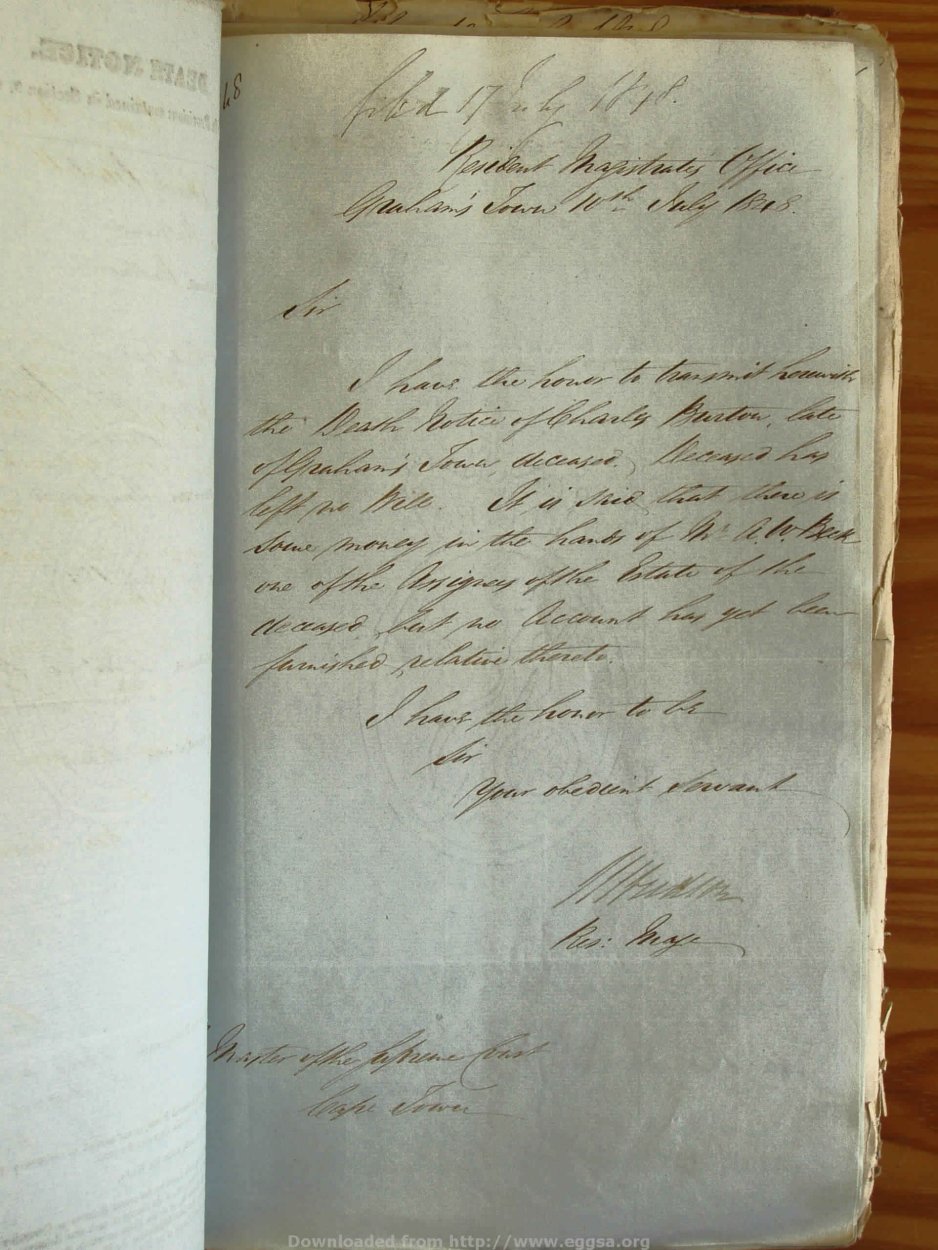 DEATH NOTICE.
48
filed 17 July 1848.
Resident Magistrates Office
Graham's Town 10th July 1848.
Sir
I have the honor to transmit herewith
the Death Notice of Charles Burton, late
of Graham's Town, deceased. Deceased has
left no Will. It is said that there is
some money in the hands of Mr A. W. Beck
one of the Assignees of the Estate of the
deceased, but no Account has yet been
furnished relative thereto.
I have the honor to be
Sir
Your obedient Servant
Hudson
Res: Mage
Master of the Supreme Court
Cape Town
Downloaded from http://www.eggsa.org